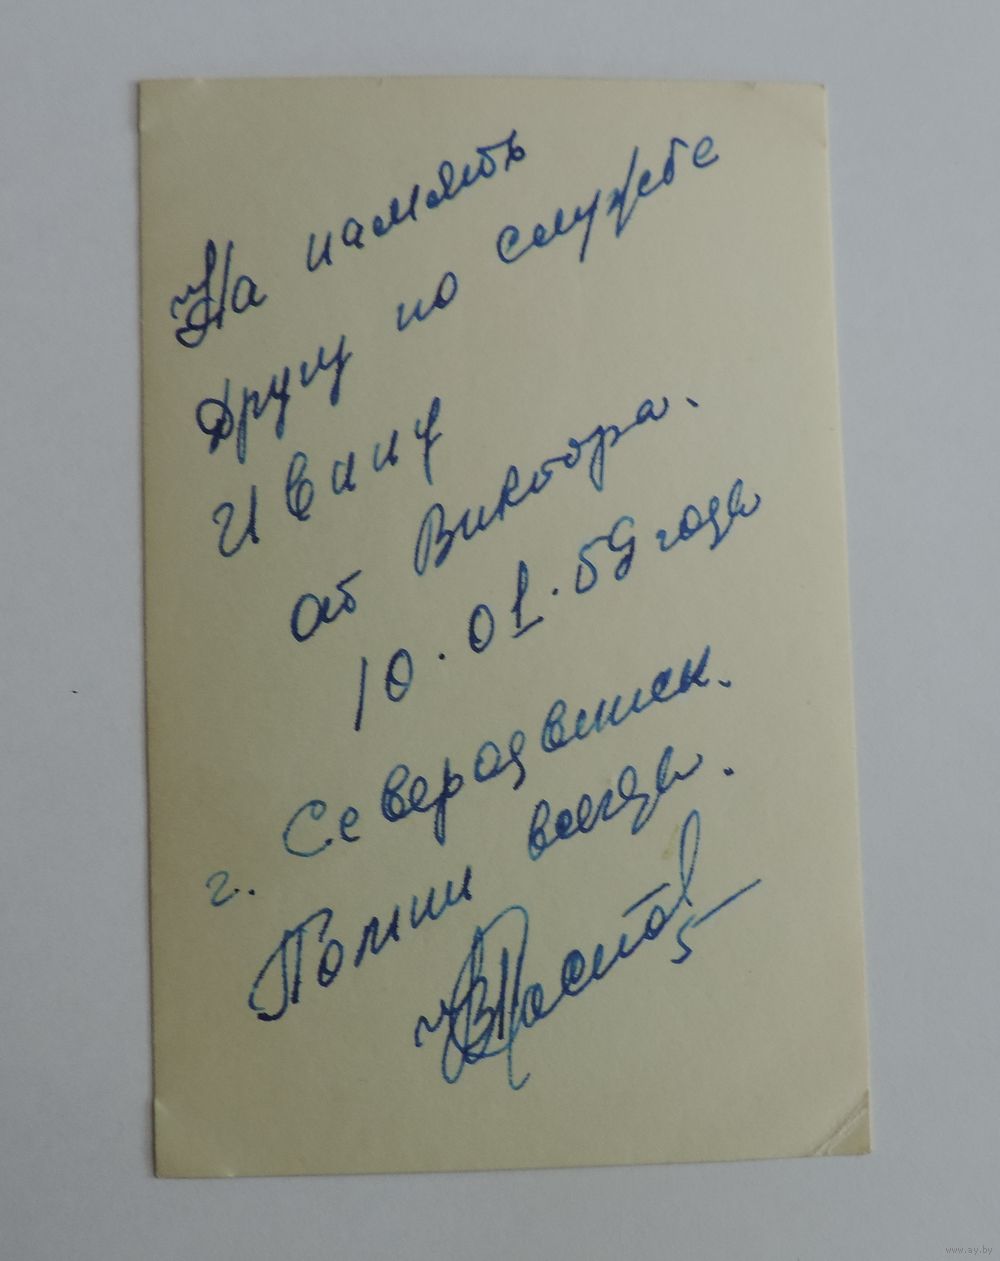 На память
другу по службе
Ивану
от Виктора.
10.01.59 года
г. Северодвинск.
Помни всегда.
www.ay.by